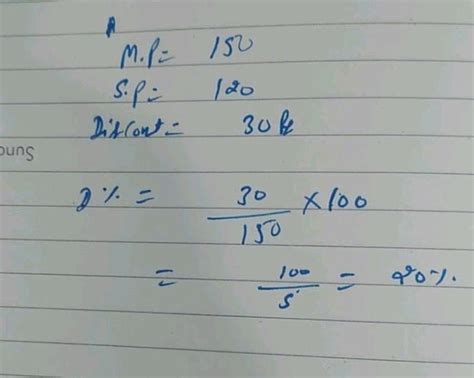 A
M.P = 150
S.P = 120
Discount = 30 Rs
D% = 30/150 × 100
= 100/5 = 20%.